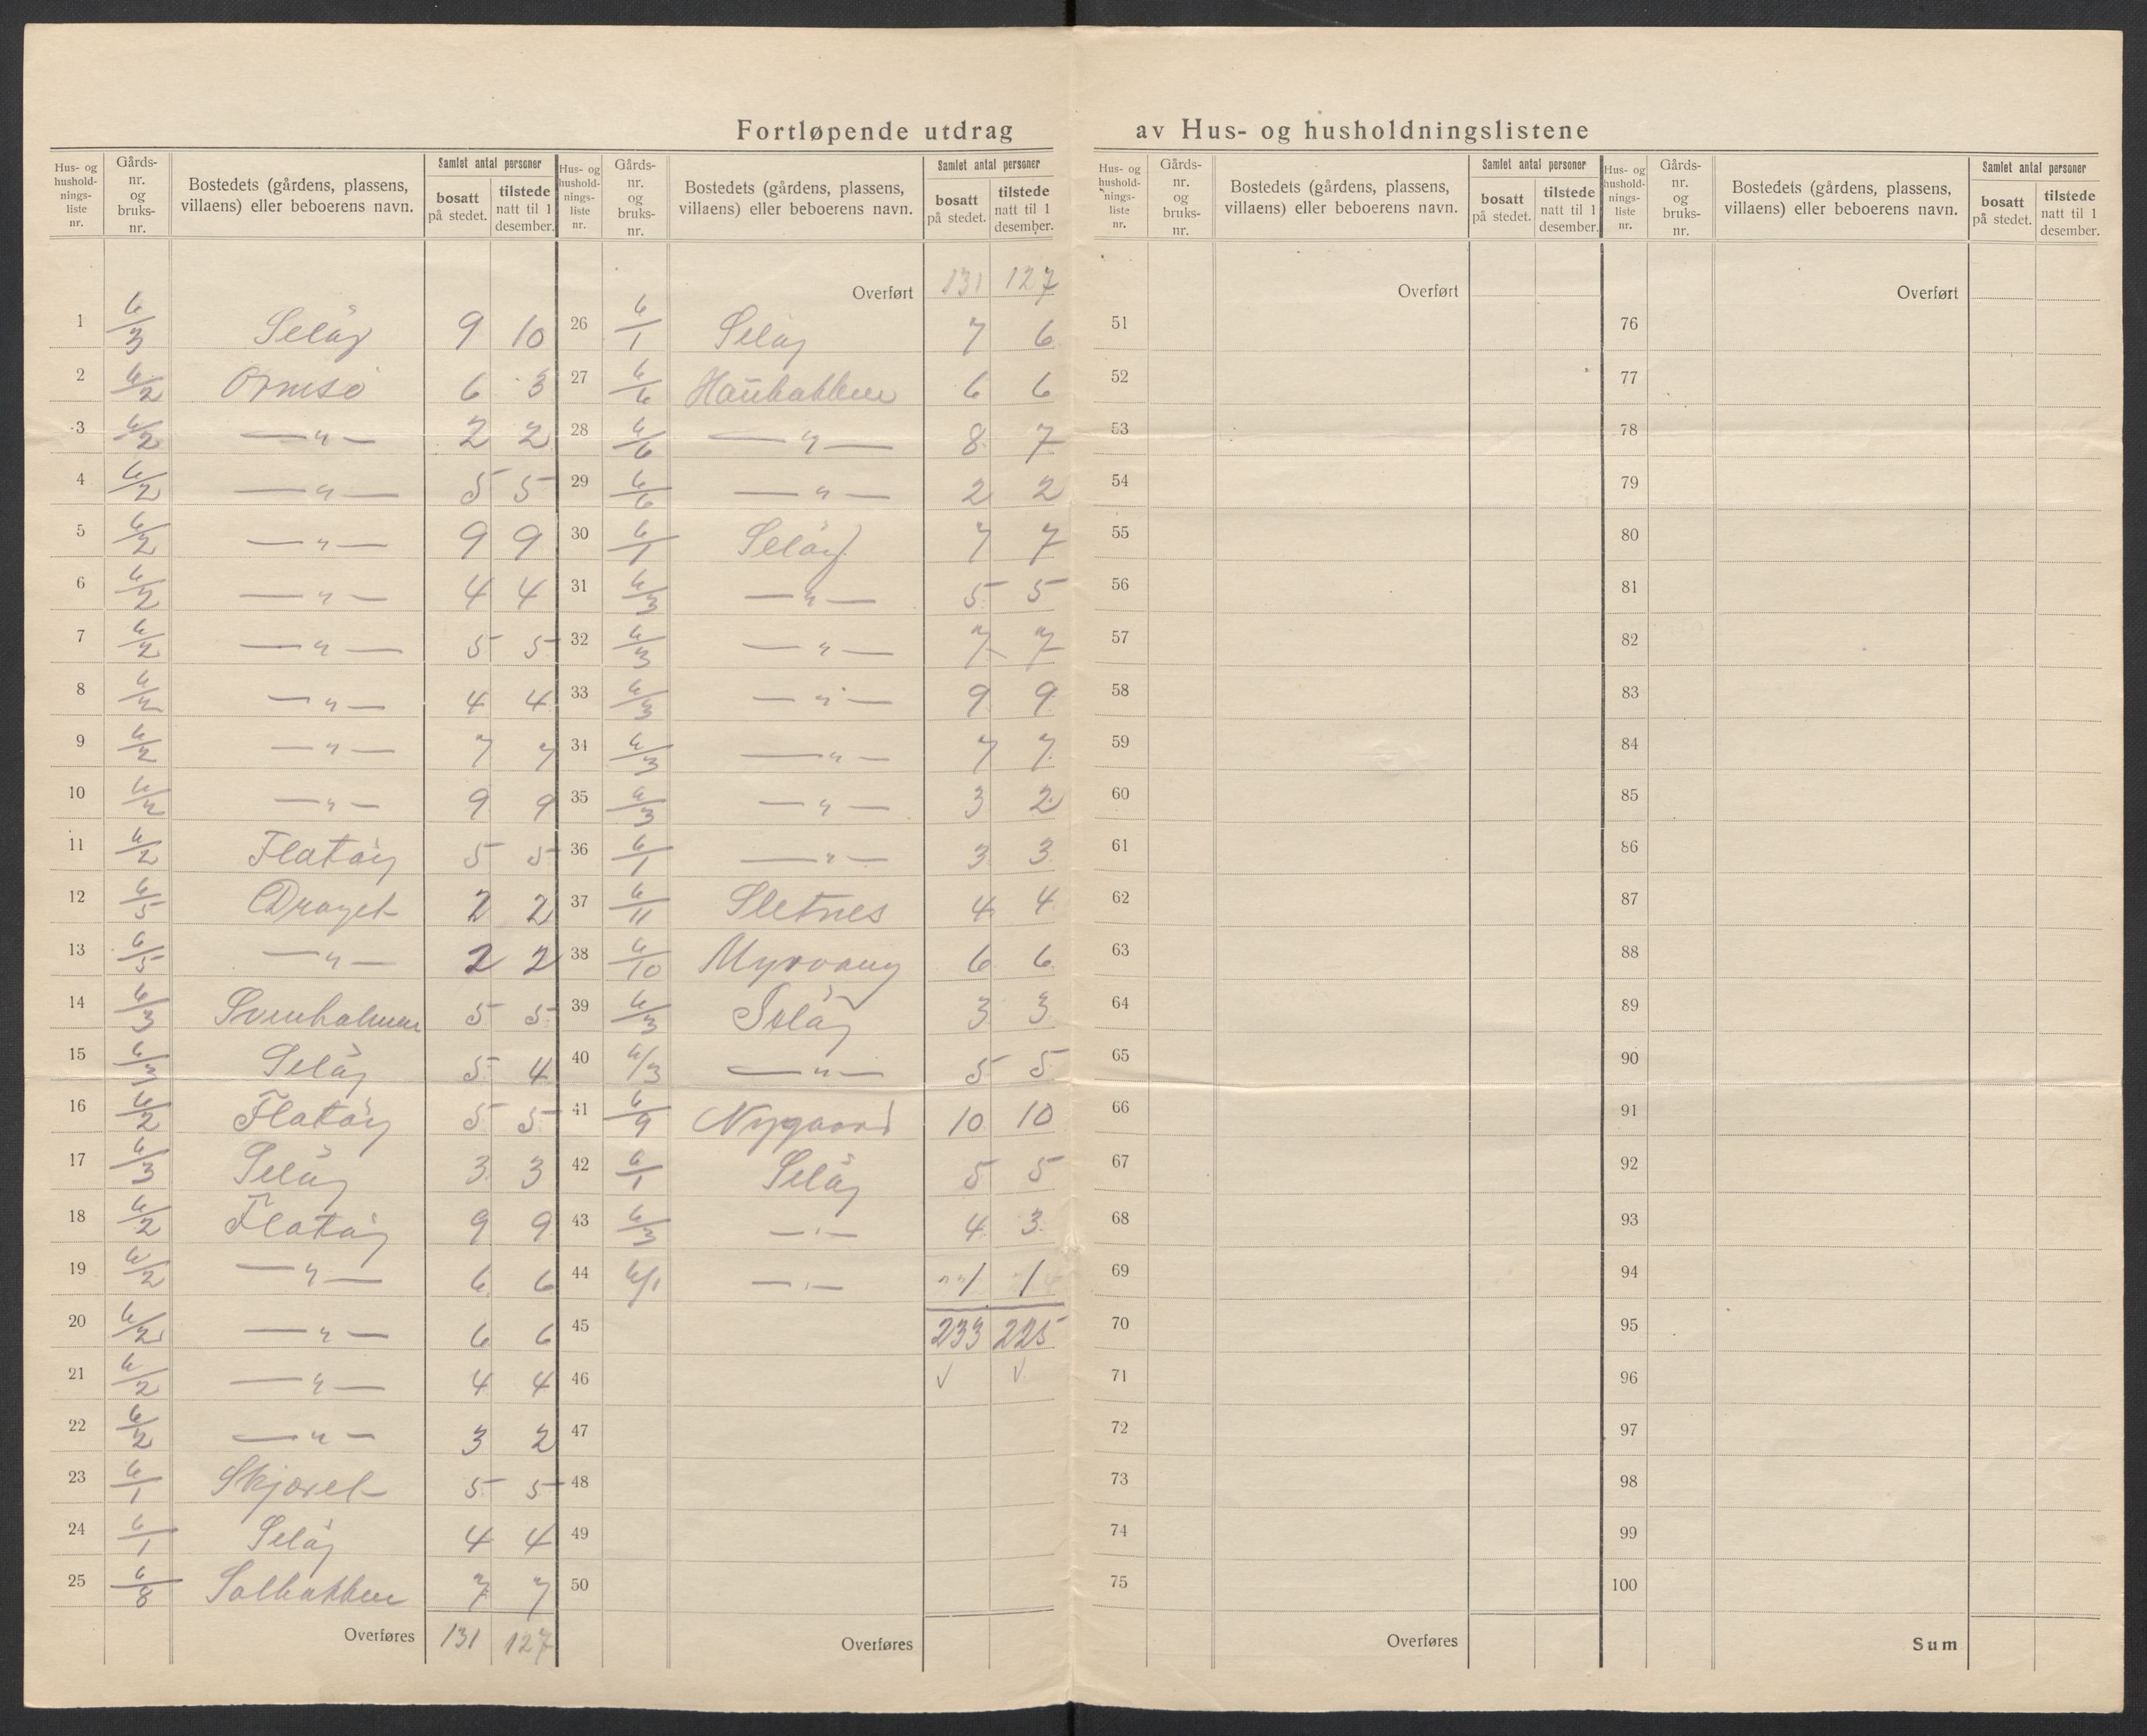 Fortløpende utdrag av Hus- og husholdningslistene
Hus- og hushold-nings-liste nr. | Gårds-nr. og bruks-nr. | Bostedets (gårdens, plassens, villaens) eller beboerens navn. | Samlet antal personer bosatt på stedet. | tilstede natt til 1 desember.
1 6/3 Seløy 9 10
2 6/2 Ormsø 6 3
3 6/2 —"— 2 2
4 6/2 —"— 5 5
5 6/2 —"— 9 9
6 6/2 —"— 4 4
7 6/2 —"— 5 5
8 6/2 —"— 4 4
9 6/2 —"— 7 7
10 6/2 —"— 9 9
11 6/2 Flatøy 5 5
12 6/5 Draget 2 2
13 6/5 —"— 2 2
14 6/3 5 5
15 6/3 Seløy 5 4
16 6/2 Flatøy 5 5
17 6/3 Seløy 3 3
18 6/2 Flatøy 9 9
19 6/2 —"— 6 6
20 6/2 —"— 6 6
21 6/2 —"— 4 4
22 6/2 —"— 3 2
23 6/1 5 5
24 6/1 Seløy 4 4
25 6/8 Solbakken 7 7
Overføres 131 127
Hus- og hushold-nings-liste nr. | Gårds-nr. og bruks-nr. | Bostedets (gårdens, plassens, villaens) eller beboerens navn. | Samlet antal personer bosatt på stedet. | tilstede natt til 1 desember.
Overført 131 127
26 6/1 Seløy 7 6
27 6/6 Haubakken 6 6
28 6/6 —"— 8 7
29 6/6 —"— 2 2
30 6/1 Seløy 7 7
31 6/3 —"— 5 5
32 6/3 —"— 7 7
33 6/3 —"— 9 9
34 6/3 —"— 7 7
35 6/3 —"— 3 2
36 6/1 —"— 3 3
37 6/11 Sletnes 4 4
38 6/10 Myrvang 6 6
39 6/3 Seløy 3 3
40 6/3 —"— 5 5
41 6/9 Nygaard 10 10
42 6/1 Seløy 5 5
43 6/3 —"— 4 3
44 6/1 —"— 1 1
45 233 225
46 √ √
47
48
49
50
Overføres
Hus- og hushold-nings-liste nr. | Gårds-nr. og bruks-nr. | Bostedets (gårdens, plassens, villaens) eller beboerens navn. | Samlet antal personer bosatt på stedet. | tilstede natt til 1 desember.
Overført
51
52
53
54
55
56
57
58
59
60
61
62
63
64
65
66
67
68
69
70
71
72
73
74
75
Overføres
Hus- og hushold-nings-liste nr. | Gårds-nr. og bruks-nr. | Bostedets (gårdens, plassens, villaens) eller beboerens navn. | Samlet antal personer bosatt på stedet. | tilstede natt til 1 desember.
Overført
76
77
78
79
80
81
82
83
84
85
86
87
88
89
90
91
92
93
94
95
96
97
98
99
100
Sum